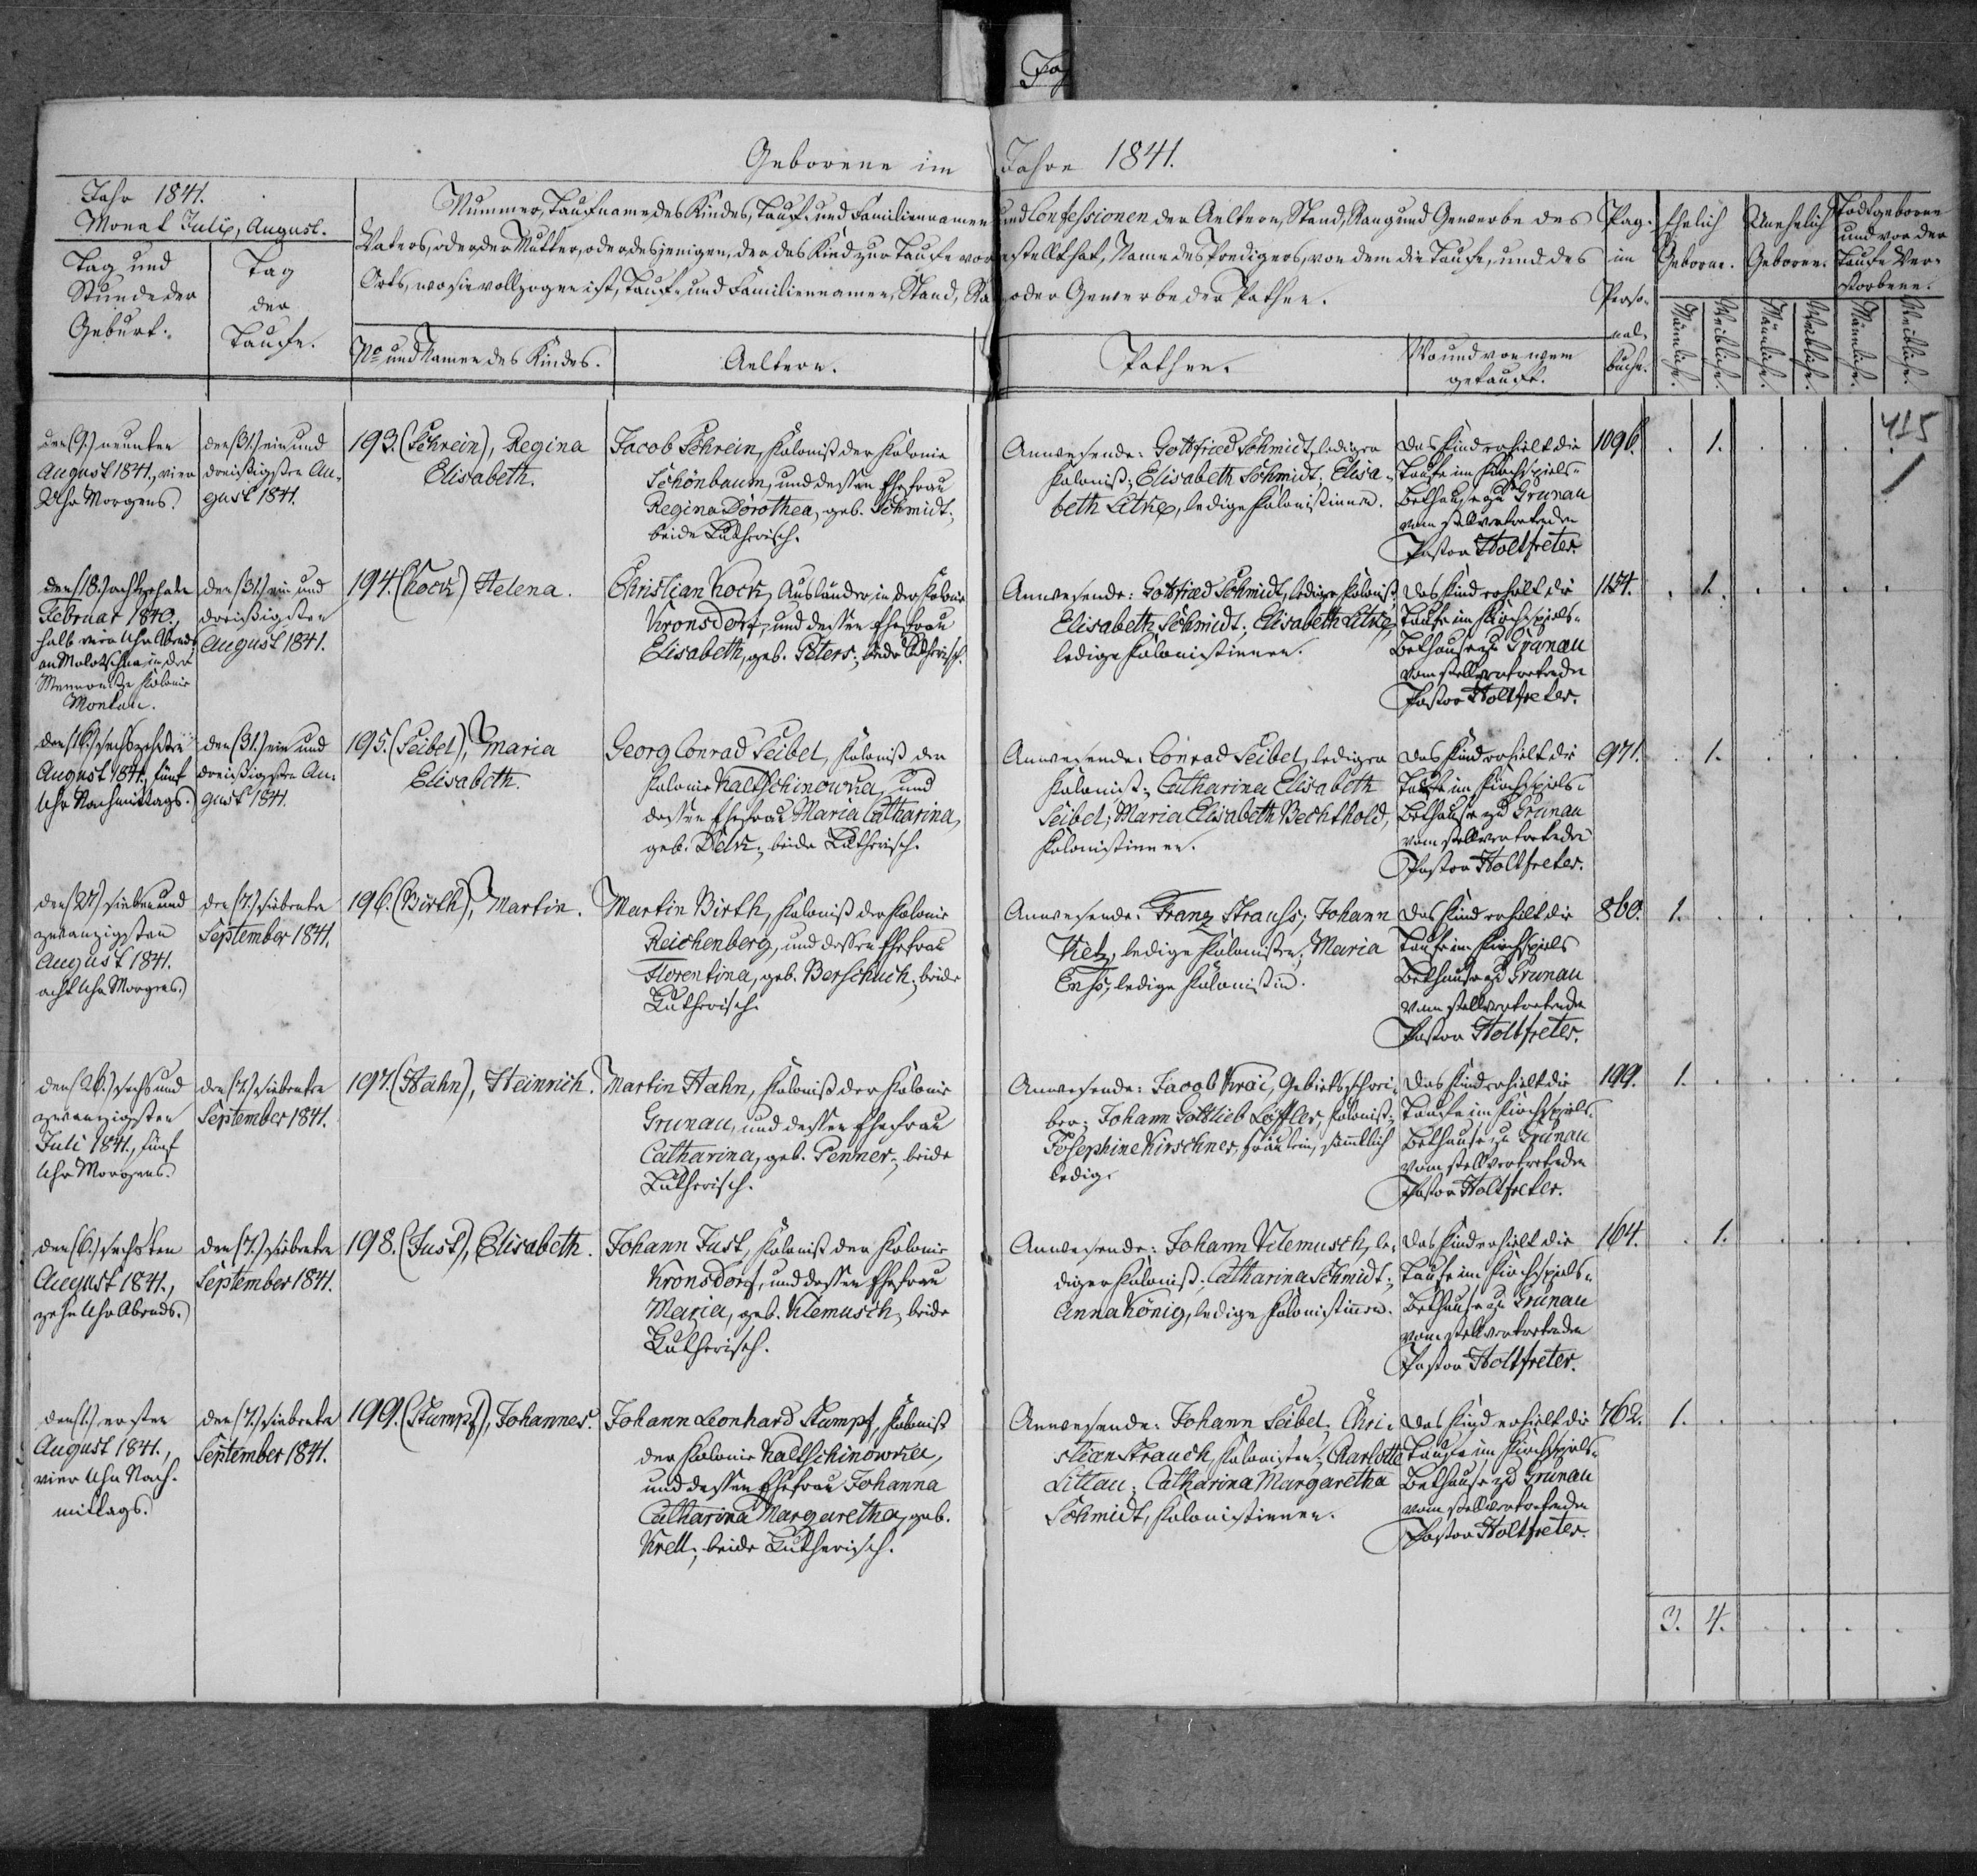 Geborene im Jahre 1841.
Jahr 1841.
Monat July, August.
Tag und
Stunde der
Geburt.
Tag
der
Taufe.
Nummer, Taufname des Kindes, Tauf- und Familiennamen und Confessionen der Aeltern, Stand, Rang und Gewerbe des
Vaters, oder der Mutter, oder desjenigen, der das Kind zur Taufe vorgestellt hat, Name des Predigers, von dem die Taufe, und des
Orts, wo sie vollzogen ist, Tauf- und Familiennamen, Stand, oder Gewerbe der Pathen.
No und Namen des Kindes.
Aeltern.
Pathen.
Wo und von wem
getauft.
Pag.
im
Perso-
nal-
buche.
Ehelich
Geborne.
Unehelich
Geborene.
Todtgeborene
und vor der
Taufe Ver-
storbene.
Männliche.
Weibliche.
Männliche.
Weibliche.
Männliche.
Weibliche.
415
den (9.) neunten
August 1841, vier
Uhr Morgens.
den (31.) ein und
dreißigsten Au-
gust 1841.
193. (Schrein), Regina
Elisabeth.
Jacob Schrein, Kolonist der Kolonie
Schönbaum, und dessen Ehefrau
Regina Dorothea, geb. Schmidt;
beide Lutherisch.
Anwesende: Gottfried Schmidt, lediger
Kolonist; Elisabeth Schmidt; Elisa-
beth Litke, ledige Kolonistinnen.
Das Kind erhielt die
Taufe im Kirchspiels-
Bethause zu Grunau
vom stellvertretenden
Pastor Holtfreter.
1096. . 1. . . .
den (18.) achtzehnten
Februar 1840.,
halb vier Uhr Abends
an Molotschna in der
Kolonie
Montau.
den (31.) ein und
dreißigsten
August 1841.
194. (Kock) Helena.
Christian Kock, Ausländer, in der Kolonie
Kronsdorf, und dessen Ehefrau
Elisabeth, geb. Peters; beide Lutherisch.
Anwesende: Gottfried Schmidt, lediger Kolonist;
Elisabeth Schmidt; Elisabeth Litke,
ledige Kolonistinnen.
Das Kind erhielt die
Taufe im Kirchspiels-
Bethause zu Grunau
vom stellvertretenden
Pastor Holtfreter.
1154. . 1. . . . .
den (16.) sechszehnten
August 1841., fünf
Uhr Nachmittags.
den (31.) ein und
dreißigsten Au-
gust 1841.
195. (Seibel), Maria
Elisabeth.
Georg Conrad Seibel, Kolonist der
Kolonie Kaltschinowka, und
dessen Ehefrau Maria Catharina,
geb. beide Lutherisch.
Anwesende: Conrad Seibel, lediger
Kolonist; Catharina Elisabeth
Seibel; Maria Elisabeth Bechthold,
Kolonistinnen.
Das Kind erhielt die
Taufe im Kirchspiels-
Bethause zu Grunau
vom stellvertretenden
Pastor Holtfreter.
971. . 1. . . . .
den (27.) sieben und
zwanzigsten
August 1841.
acht Uhr Morgens.
den (7.) siebenten
September 1841.
196. (Birth), Martin.
Martin Birth, Kolonist der Kolonie
Reichenberg, und dessen Ehefrau
Florentina, geb. Berschuck; beide
Lutherisch.
Anwesende: Franz Strauhs; Johann
Kietz, ledige Kolonisten; Maria
Enhs, ledige Kolonistin.
Das Kind erhielt die
Taufe im Kirchspiels
Bethause zu Grunau
vom stellvertretenden
Pastor Holtfreter.
860. 1. . . . . .
den (26.) sechs und
zwanzigsten
Juli 1841., fünf
Uhr Morgens.
den (7.) siebenten
September 1841.
197. (Hahn), Heinrich.
Martin Hahn, Kolonist der Kolonie
Grunau, und dessen Ehefrau
Catharina, geb. Penner; beide
Lutherisch.
Anwesende: Jacob Kroi, Gebietsschrei-
ber; Johann Gottlieb Löffler, Kolonist;
Josephine Kirschner, Fräulein, sämmtlich
ledig.
Das Kind erhielt die
Taufe im Kirchspiels-
Bethause zu Grunau
vom stellvertretenden
Pastor Holtfreter.
199. 1. . . . . .
den (6.) sechsten
August 1841.,
zehn Uhr Abends.
den (7.) siebenten
September 1841.
198. (Just), Elisabeth.
Johann Just, Kolonist der Kolonie
Kronsdorf, und dessen Ehefrau
Maria, geb. Klemusch; beide
Lutherisch.
Anwesende: Johann Klemusch, le-
diger Kolonist; Catharina Schmidt;
Anna König, ledige Kolonistinnen.
Das Kind erhielt die
Taufe im Kirchspiels-
Bethause zu Grunau
vom stellvertretenden
Pastor Holtfreter.
164. . 1. . . . .
den (1.) ersten
August 1841.,
vier Uhr Nach-
mittags.
den (7.) siebenten
September 1841.
199. (Stumpf), Johannes.
Johann Leonhard Stumpf, Kolonist
der Kolonie Kaltschinowka,
und dessen Ehefrau Johanna
Catharina Margaretha, geb.
Krell; beide Lutherisch.
Anwesende: Johann Seibel, Chri-
stian Strauch, Kolonisten; Charlotte
Littau; Catharina Margaretha
Schmidt, Kolonistinnen.
Das Kind erhielt die
Taufe im Kirchspiels-
Bethause zu Grunau
vom stellvertretenden
Pastor Holtfreter.
762. 1. . . . . .
3. 4. . . . .